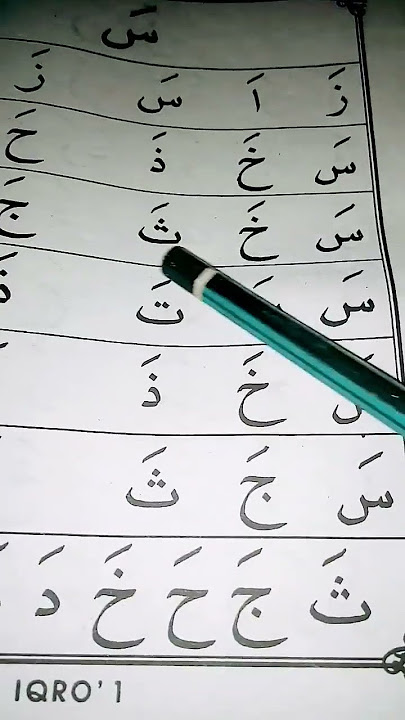 سَ
زَ اَ سَ زَ
سَ خَ ذَ خَ
سَ خَ ثَ
سَ تَ
خَ ذَ
سَ جَ ثَ
ثَ جَ حَ خَ دَ
IQRO' 1